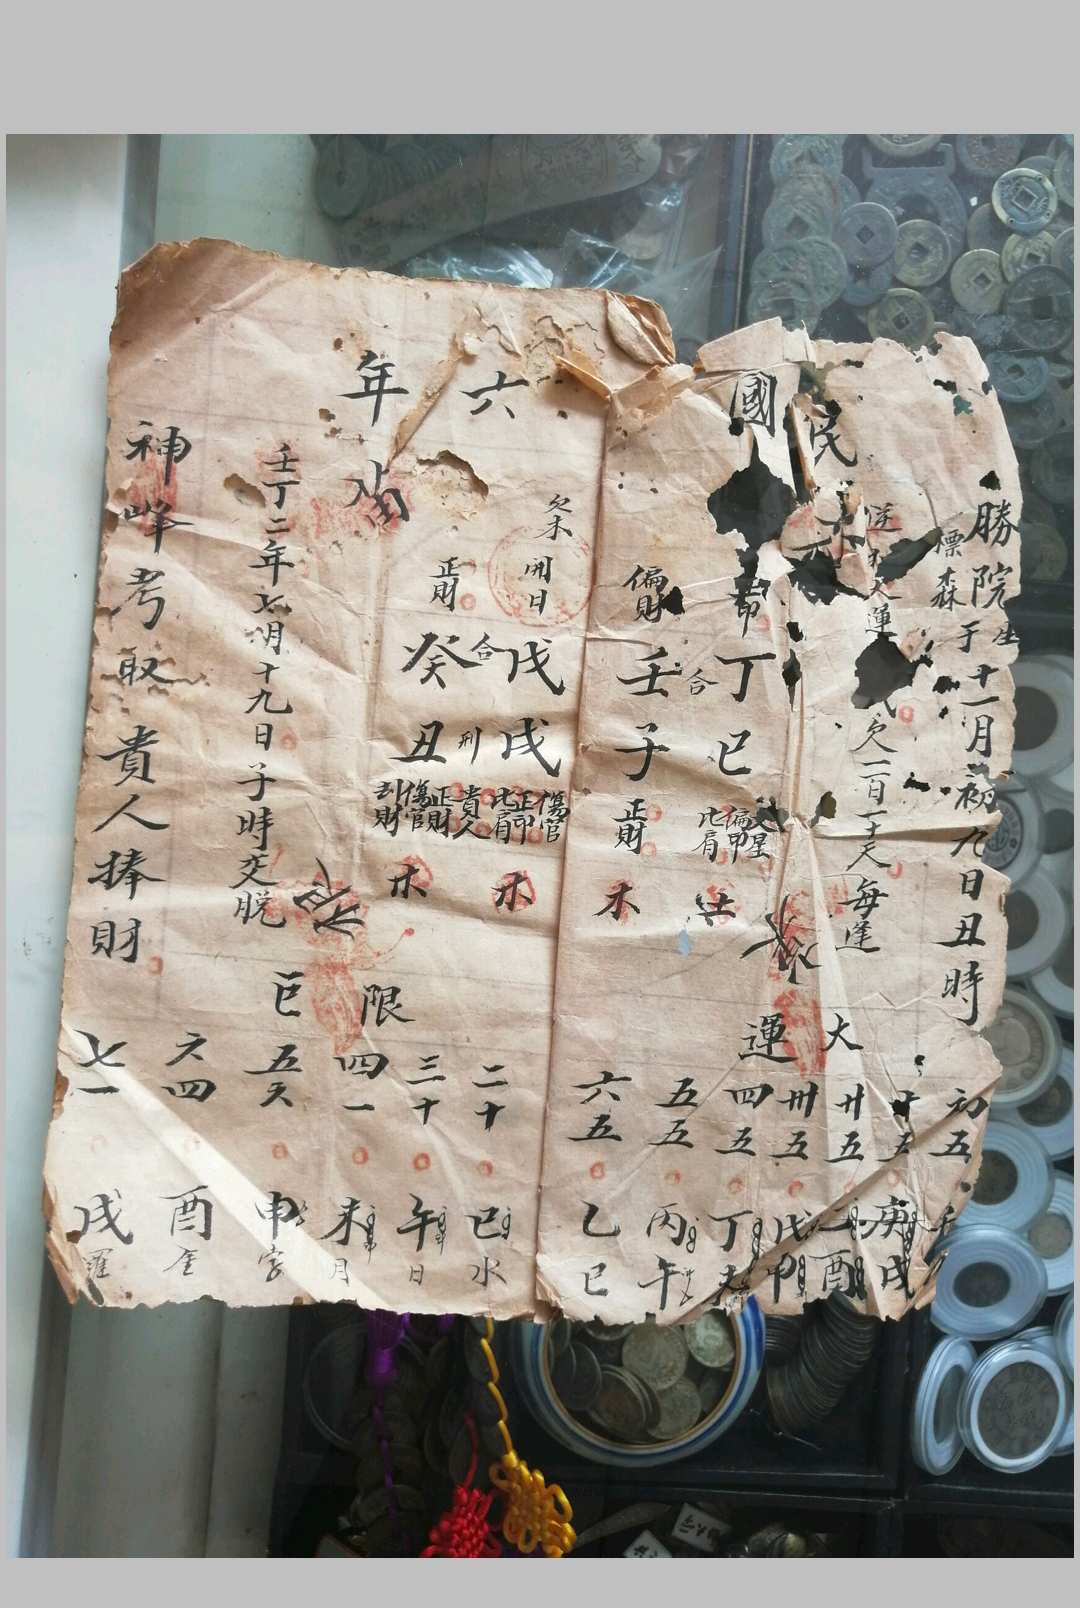 勝院生
標森
于十一月初九日丑時
逆
大運
欠一百二十天
每逢
民國六年
偏印
丁巳
比肩
偏印
文星
偏財
合
壬子
正財
木
開日
戊戌
傷官
正印
比肩
貴人
合
刑
正財
癸丑
正財
傷官
劫財
木
木
壬丁二年七月十九日子時交脱
神峰考取貴人捧財
大運
初五
十五
庚戌
廿五
酉
卅五
戊申
四五
丁未
五五
丙午
六五
乙巳
限
二十
巳
水
三十
午
日
四一
未
月
五
申
六四
酉
金
七一
戌
羅